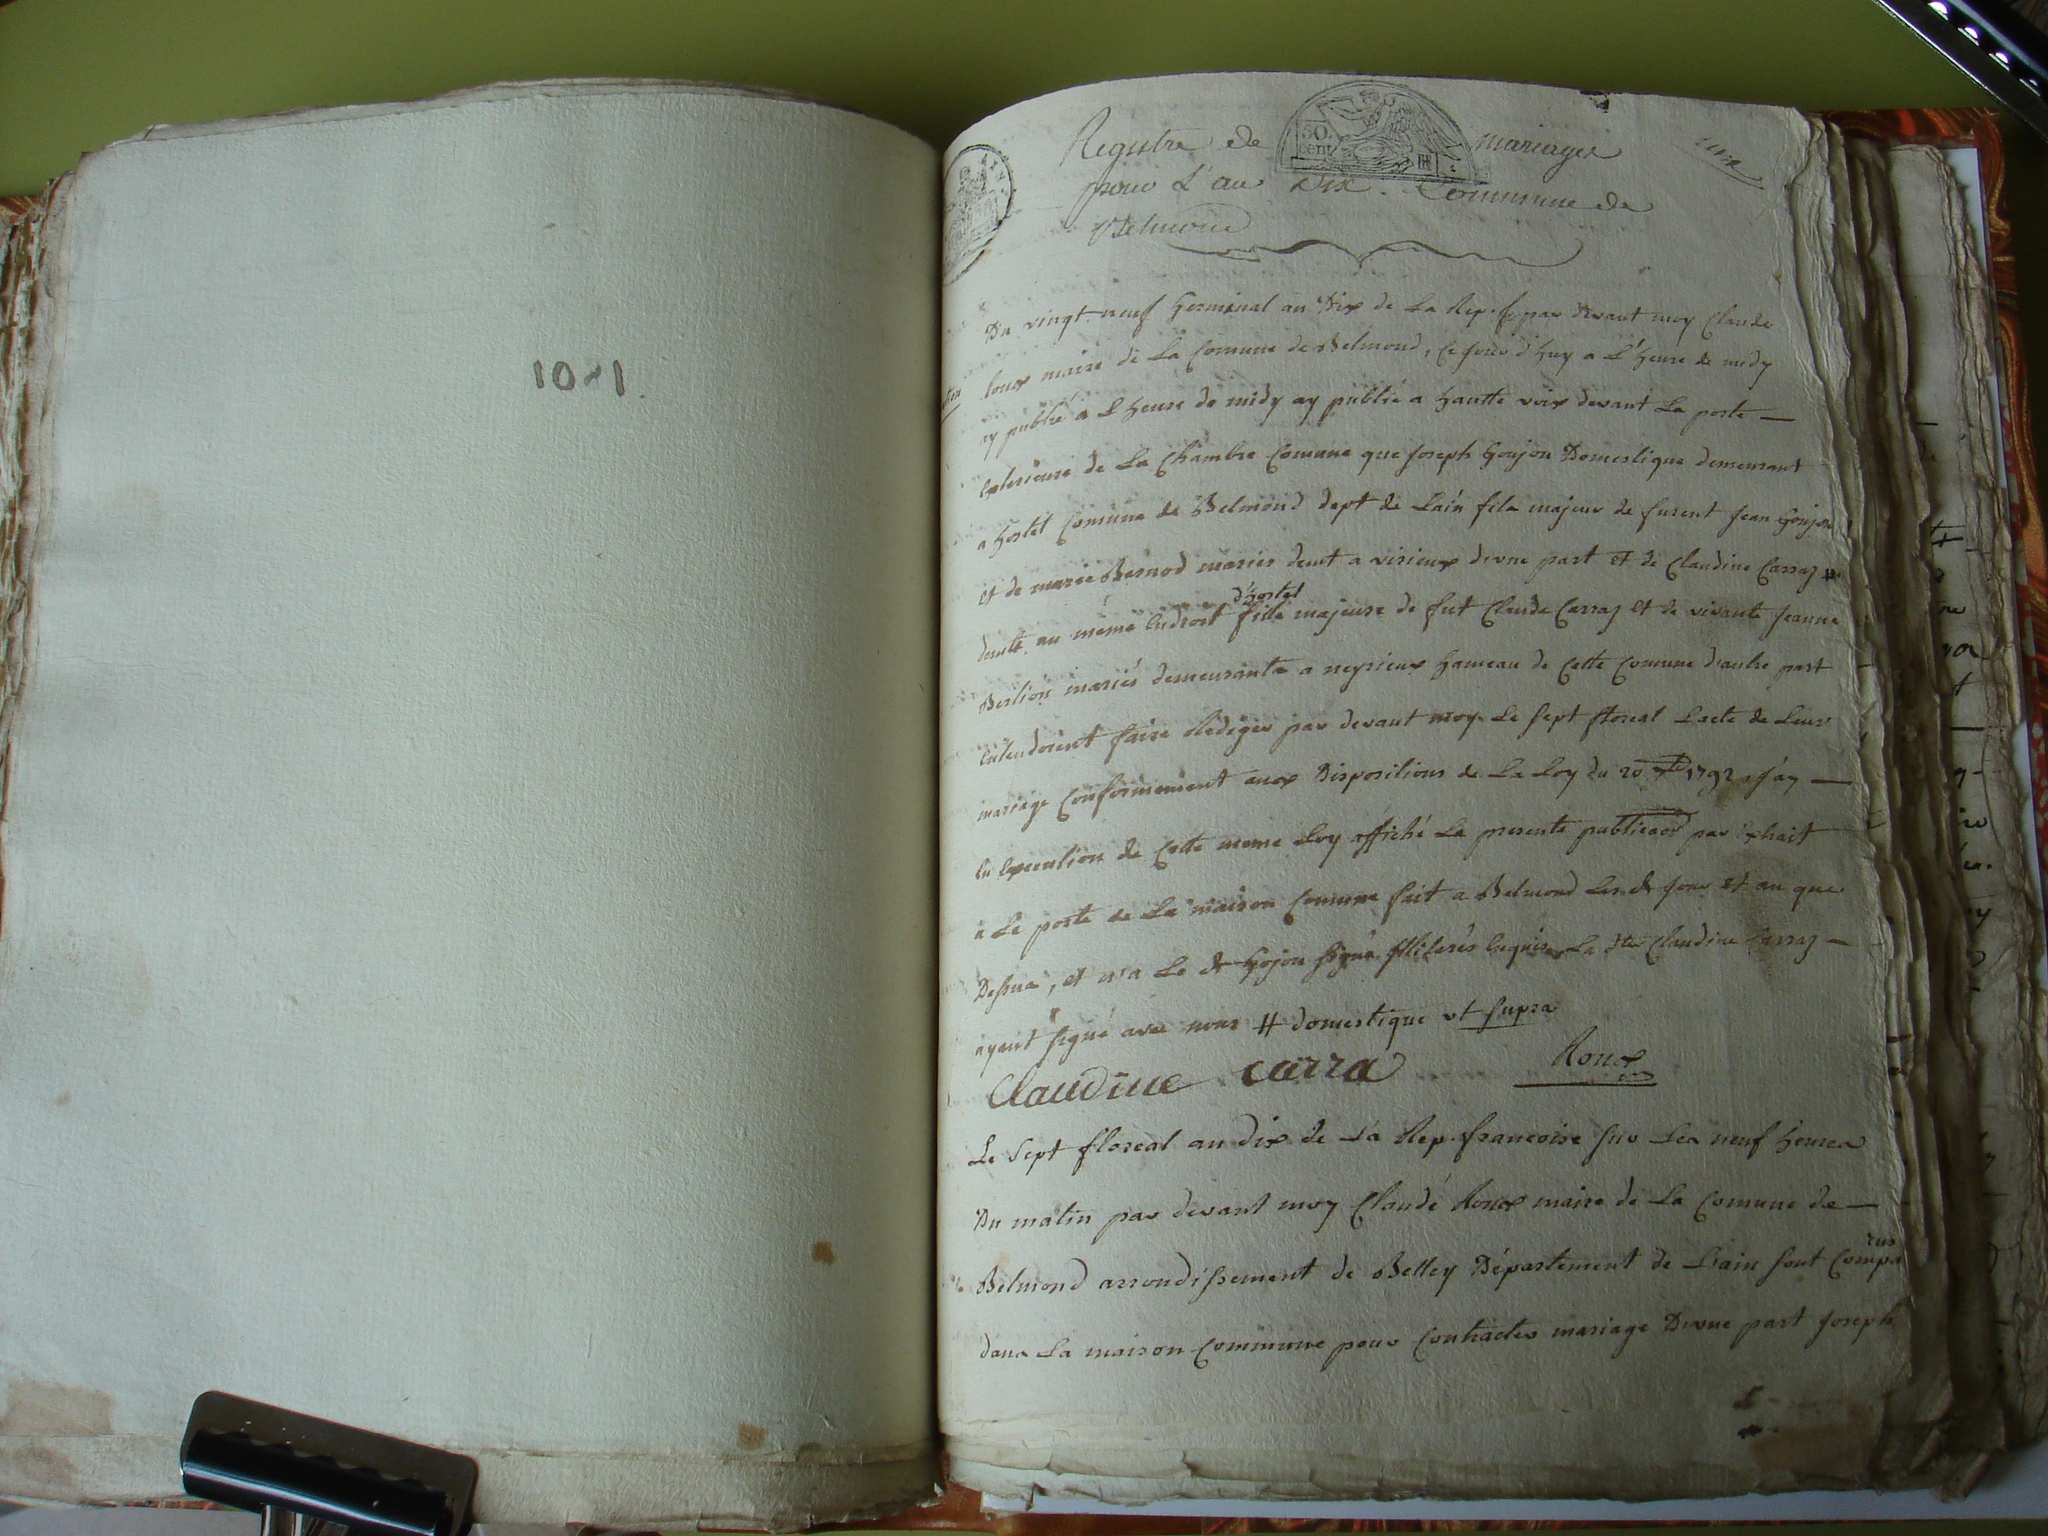 10-1.
Registre de mariages
pour l'an dix. Commune de
Belmond
30
cent
Du vingt neuf Germinal an Dix de La Rep. fse par devant moy Claude
Roux maire de La Comune de Belmond, ce jour d'huy a L'heure de midy
ay publié a L'heure de midy ay publié a hautte voix devant La porte —
exterieure de La Chambre Comune que joseph Goujon Domestique demeurant
a hostel Comune de Belmond dept de Lain fils majeur de furent jean Goujon
et de marie Bernod mariés demt a virieux d'vne part et de Claudine Carraz #
demte au même Endroit d'hostel fille majeure de fut Claude Carraz et de vivante jeanne
Berlion mariés demeurants a neyrieux hameau de Cette Comune d'autre part
Entendoient faire Rédiger par devant moy Le sept floreal L'acte de Leur
mariage Conformement aux Dispositions de La Loy du 20 7bre 1792, j'ay —
En Execution de Cette meme Loy affiché La presente publicaon par Extrait
a La porte de La maison Comune fait a Belmond Les dt jour et an que
Dessus, et n'a Le dt Gojon signé illiterés Enquis La dte Claudine Carraz —
ayant signé avec nous # domestique ut supra
Claudine carra Roux
Le sept floreal an dix de La Rep. francoise sur Les neuf heures
Du matin par devant moy Claude Roux maire de La Comune de —
Belmond arrondissement de Belley Département de Lain sont Comparus
dans La maison Commune pour Contracter mariage D'vne part joseph